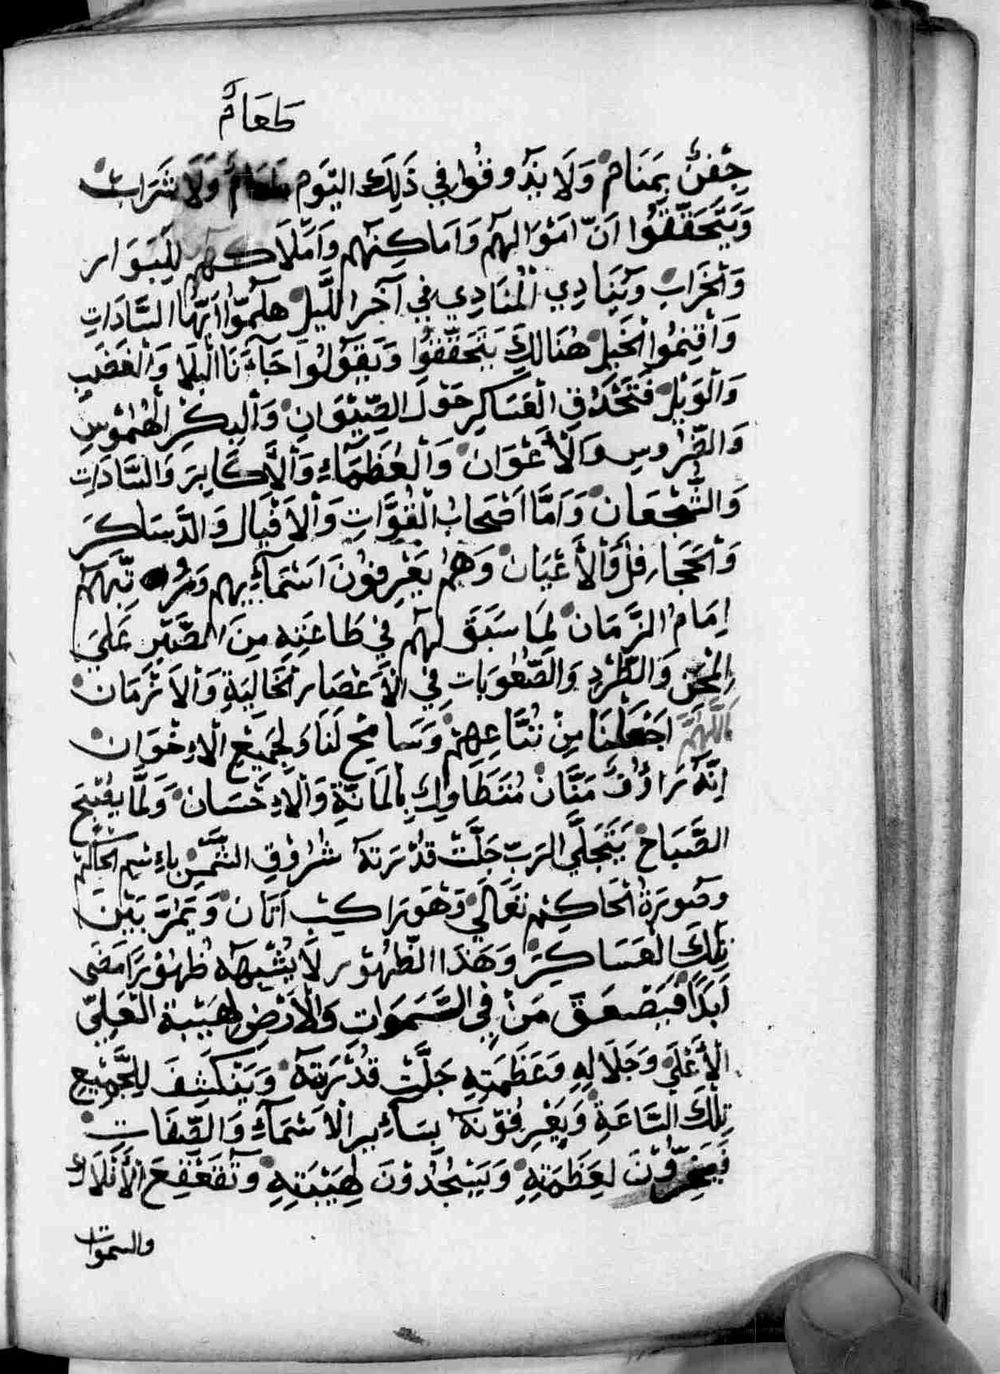 طَعَامٌ
جِفْنٌ بِمَنَامٍ وَلَا يَذُوقُوا فِي ذَلِكَ الْيَوْم طَعَامٌ وَلَا شَرَابٌ
وَيَتَحَقَّقُوا اَنَّ اَمْوَالهُم وَاَمَاكِنهُم وَاَمْلَاكهُم لِلْبَوَار
وَالْخَرَابِ وَيُنَادِي الْمُنَادِي فِي آخَر اللَّيْلِ هَلُمُّوا اَيُّهَا السَّادَاتِ
وَاَقِيمُوا الْخَيْل هُنَالِكَ يَتَحَقَّقُوا وَيَقُولُوا جَاءَنَا الْبَلَا وَالْغَضَب
وَالْوَيْل فَتَحْدُق الْعَسَاكِر حَوْلَ الصِّيْوَانِ وَالْبِكْر الْهُمُوْس
وَالضَّرُوس وَالْأَعْوَان وَالْعُظَمَاءِ وَالْأَكَابِرَ وَالسَّادَاتِ
وَالشُّجْعَان وَاَمَّا اَصْحَابُ الْقُوَّاتِ وَالْأَفْيَال وَالدَّسَاكَر
وَالْجَحَافِل وَالْأَعْيَان وَهُمْ يَعْرِفُونَ اَسْمَآئِهِم وَمَرَاتِبَهُم
اِمَامُ الزَّمَانِ لِمَا سَبَقَ لَهُم فِي طَاعَتِهِ مِنَ الصَّبْرِ عَلَى
الْمِحَن وَالطَّرْدِ وَالصُّعُوبَات فِي الْأَعْصَار الْخَالِيَةِ وَالْأَزْمَان
اَللَّهُمَّ اجْعَلْنَا مِنْ تُبَّاعِهِمْ وَسَامِح لَنَا وَلِجَمِيْعِ الْاِخْوَان
اِنَّهُ رَاؤُفٌ مَنَّان مُتَطَاوِلٌ بِالْمَانَةِ وَالْاِحْسَان وَلَمَّا يُفْتِح
الصَّبَاح يَتَجَلَّى الرَبّ جَلَّتْ قُدْرَتهُ شُرُوْقِ الشَّمْسِ بِاِسْمِ الْحَاكِم
وَصُورَة الْحَاكِم تَعَالَى وَهُوَ رَاكِب اَتَان وَيَمُرُّ بَيْنَ
تِلْكَ الْعَسَاكِرَ وَهَذَا الظُّهُوْر لَا يُشْبِهَهُ ظُهُوْرًا مَضَى
اَبَدًا فَيَصْعَقَ مَنْ فِي السَّمَوَاتِ وَالْأَرْضِ لِهَيْبَةِ الْعَلِيّ
الْأَعْلَى وَجَلَالِهِ وَعَظَمَتِهِ جَلَّتْ قُدْرَتهُ وَيَنْكَشِفَ لِلْجَمِيْعِ
تِلْكَ السَّاعَةِ وَيَعْرِفُوْنَهُ بِسَائِر الْاَسْمَآءِ وَالصِّفَات
فَيَخِرُّوْنَ لِعَظَمَتِهِ وَيَسْجُدُوْنَ لِهَيْبَتِهِ وَتَقَعْقِعَ الْأَفْلَاك
والسموات